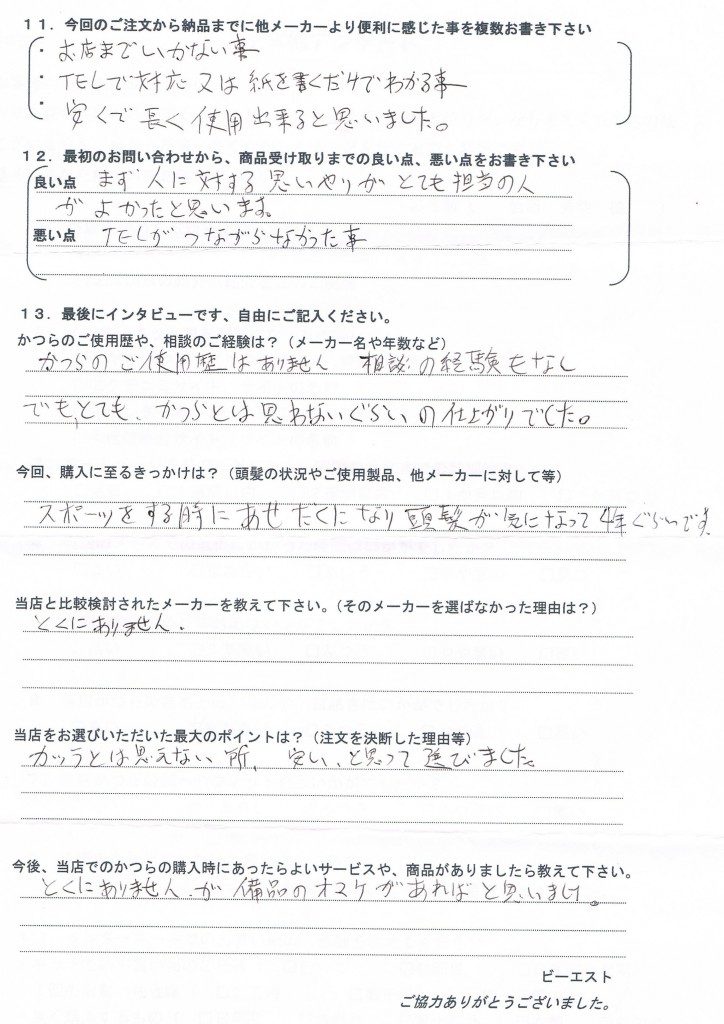 11．今回のご注文から納品までに他メーカーより便利に感じた事を複数お書き下さい
・お店までいかない事
・TELで対応又は紙を書くだけでわかる事
・安くで長く使用出来ると思いました。
12．最初のお問い合わせから、商品受け取りまでの良い点、悪い点をお書き下さい
良い点 まず人に対する思いやりがとても担当の人
がよかったと思います。
悪い点 TELがつながらなかった事
13．最後にインタビューです、自由にご記入ください。
かつらのご使用歴や、相談のご経験は？（メーカー名や年数など）
かつらのご使用歴はありません 相談の経験もなし
でも、とても、かつらとは思わないぐらいの仕上がりでした。
今回、購入に至るきっかけは？（頭髪の状況やご使用製品、他メーカーに対して等）
スポーツをする時にあせだくになり頭髪が気になって4年ぐらいです。
当店と比較検討されたメーカーを教えて下さい。（そのメーカーを選ばなかった理由は？）
とくにありません.
当店をお選びいただいた最大のポイントは？（注文を決断した理由等）
カツラとは思えない所、安い、と思って選びました。
今後、当店でのかつらの購入時にあったらよいサービスや、商品がありましたら教えて下さい。
とくにありません.が備品のオマケがあればと思います。
ビーエスト
ご協力ありがとうございました。